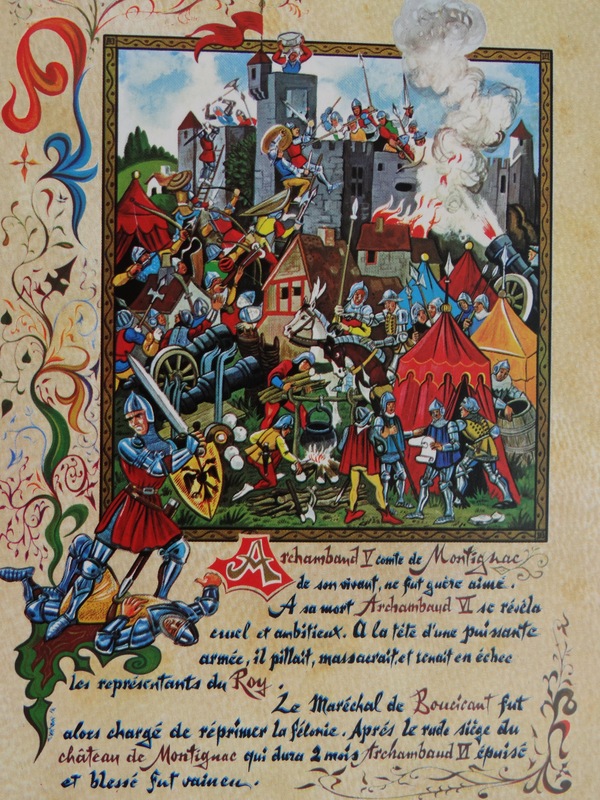 Archambaud V comte de Montignac
de son vivant, ne fut guère aimé.
A sa mort Archambaud VI se révéla
cruel et ambitieux. A la tête d'une puissante
armée, il pillait, massacrait, et tenait en échec
les représentants du Roy.
Le Maréchal de Boucicaut fut
alors chargé de réprimer la félonie. Aprés le rude siège du
château de Montignac qui dura 2 mois Archambaud VI épuisé
et blessé fut vaincu.